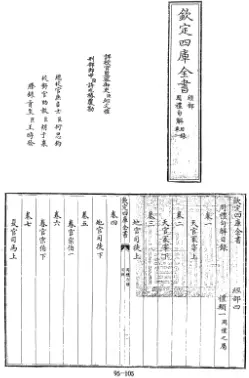 欽定四庫全書
經部
周禮句解
刑部郎中臣許兆椿覆勘
總校官庶吉士臣何思鈞
校對官助教臣胡予襄
欽定四庫全書 經部四
周禮句解目錄 禮類一周禮之屬
卷一
天官冢宰上
卷二
天官冢宰下
卷三
地官司徒上
欽定四庫全書
卷四
地官司徒下
卷五
春官宗伯上
卷六
春官宗伯下
卷七
夏官司馬上
95-105